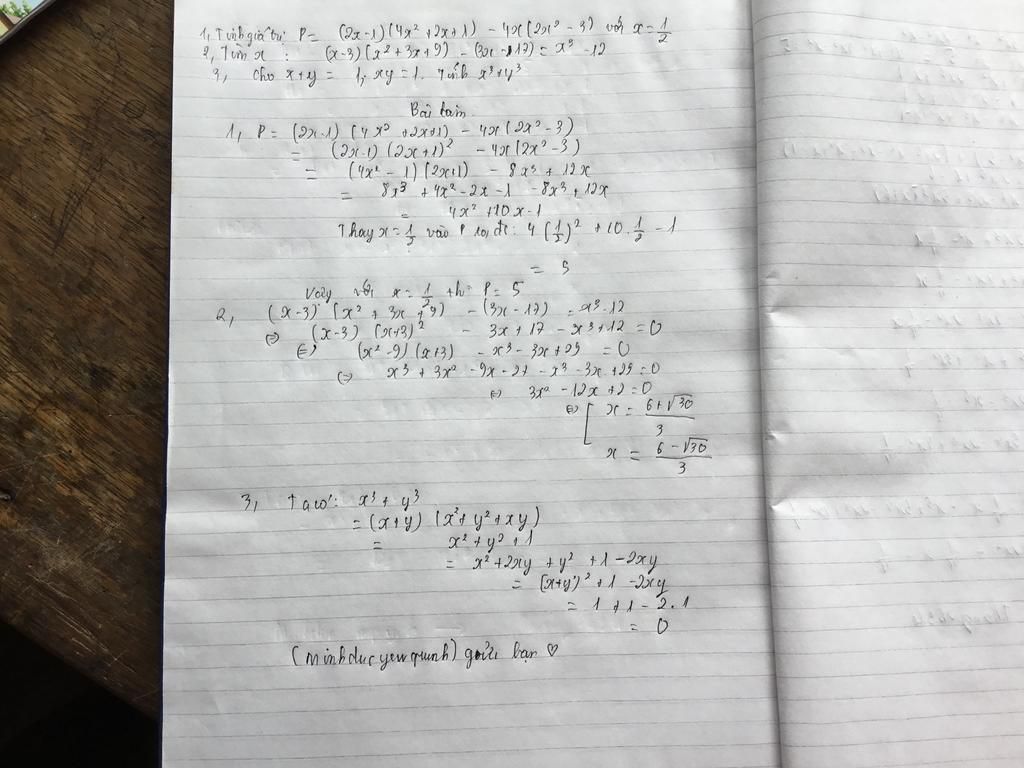 1, Tính giá trị P = (2x-1)(4x² + 2x + 1) - 4x(2x² - 3) với x = 1/2
2, Tìm x : (x-3)(x² + 3x + 9) - (3x - 17) = x³ - 12
3, cho x + y = 1, xy = 1. Tính x³ + y³
Bài làm
1, P = (2x-1)(4x² + 2x + 1) - 4x(2x² - 3)
= (2x-1)(2x+1)² - 4x(2x² - 3)
= (4x² - 1)(2x+1) - 8x³ + 12x
= 8x³ + 4x² - 2x - 1 - 8x³ + 12x
= 4x² + 10x - 1
Thay x = 1/2 vào P ta đc: 4(1/2)² + 10.1/2 - 1
= 5
Vậy với x = 1/2 thì P = 5
2, (x-3)(x² + 3x + 9) - (3x - 17) = x³ - 12
⇔ (x-3)(x+3)² - 3x + 17 - x³ + 12 = 0
⇔ (x² - 9)(x+3) - x³ - 3x + 29 = 0
⇔ x³ + 3x² - 9x - 27 - x³ - 3x + 29 = 0
⇔ 3x² - 12x + 2 = 0
⇔ [ x = (6+√30)/3
x = (6-√30)/3
3, Ta có: x³ + y³
= (x+y)(x² + y² + xy)
= x² + y² + 1
= x² + 2xy + y² + 1 - 2xy
= (x+y)² + 1 - 2xy
= 1 + 1 - 2.1
= 0
(minhducyeuquynh) gửi bạn ♡